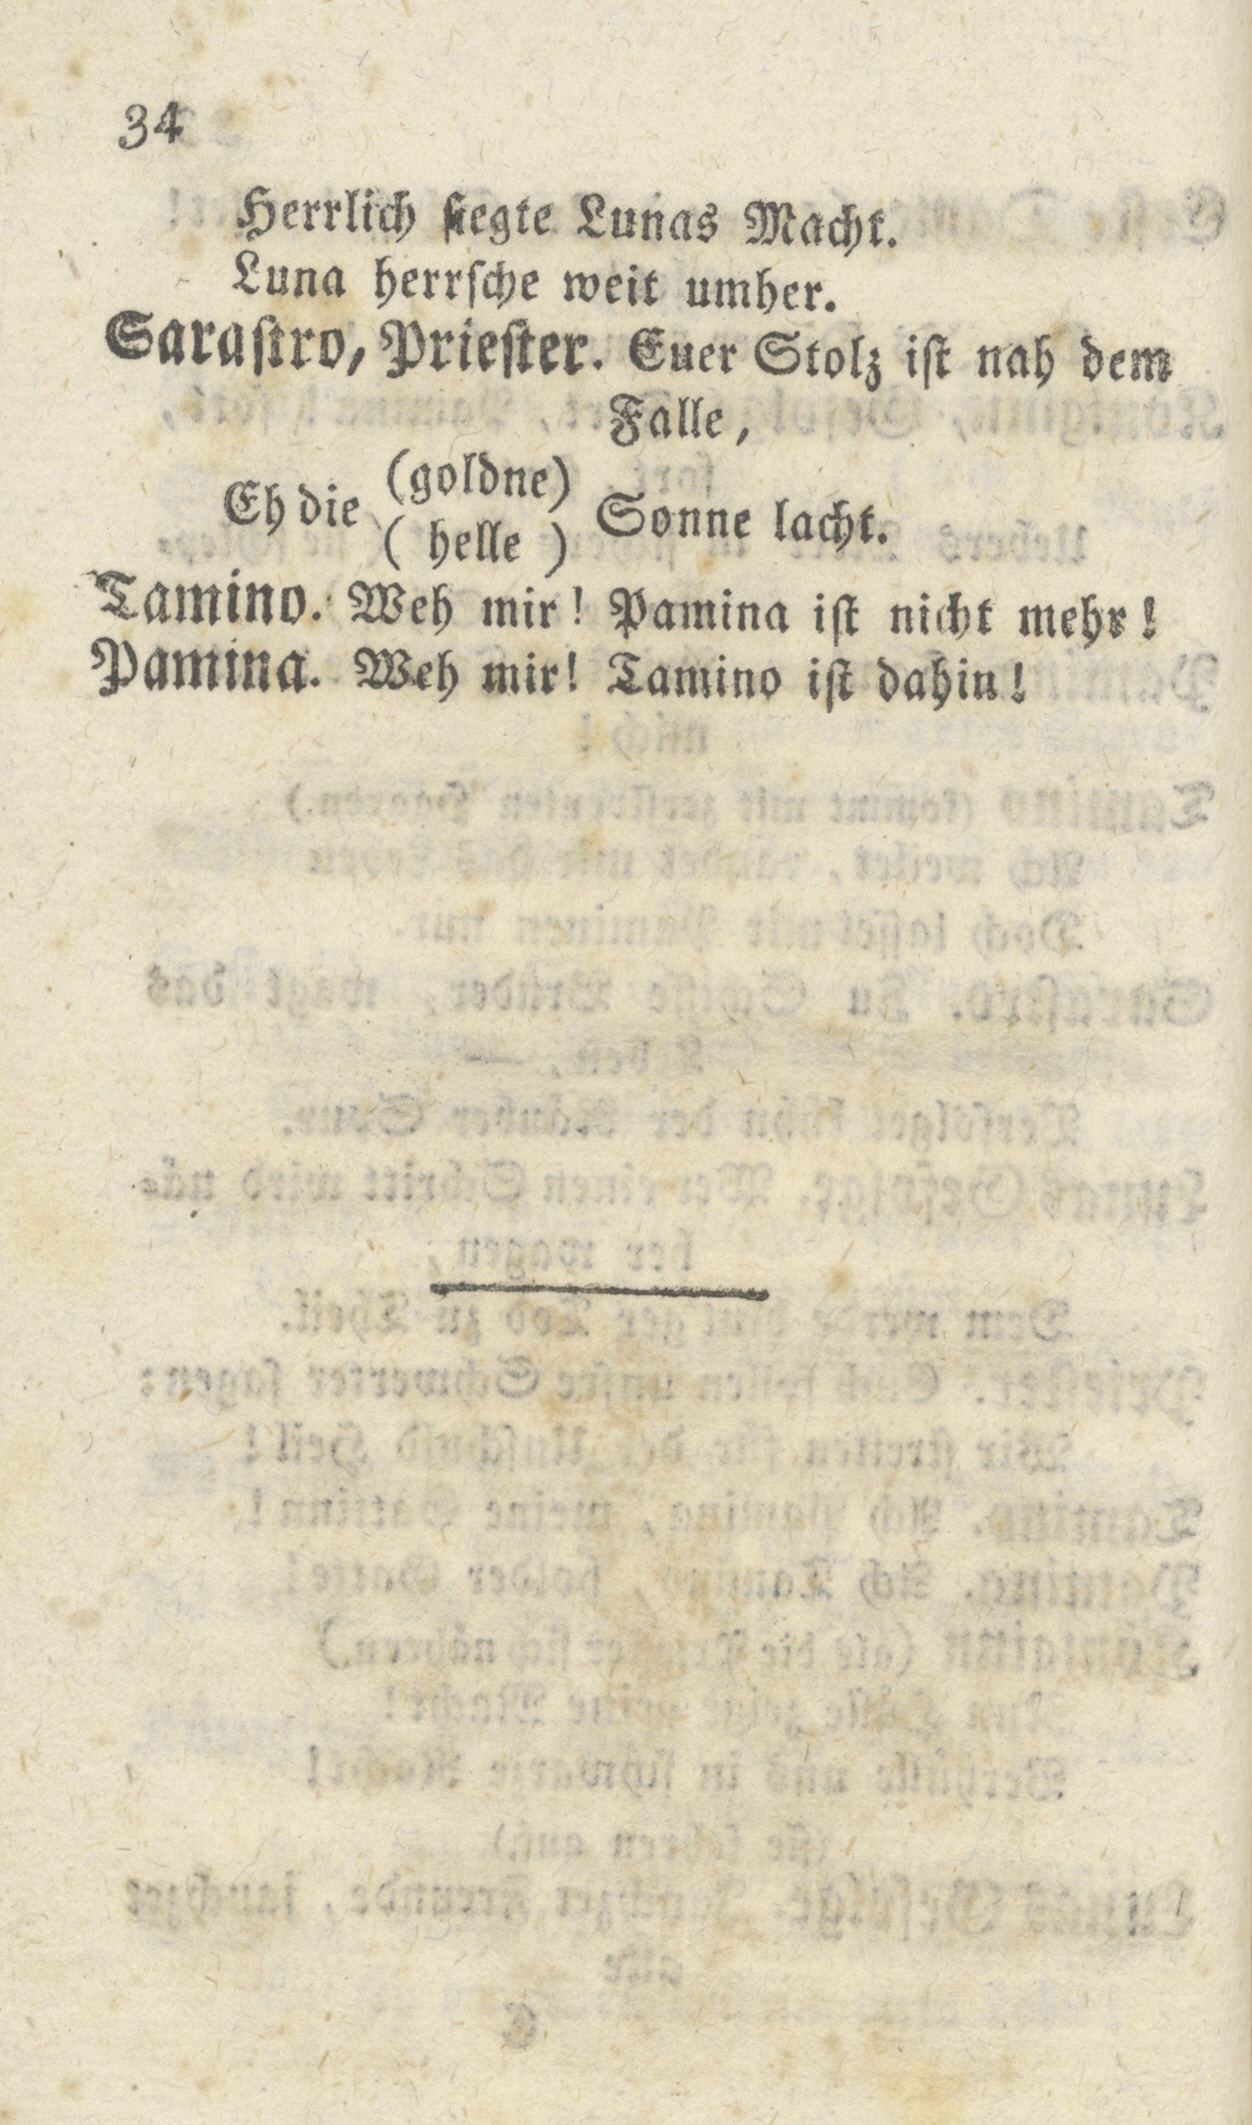 34
Herrlich ſiegte Lunas Macht.
Luna herrſche weit umher.
Saraſtro, Prieſter. Euer Stolz iſt nah dem
Falle,
Eh die (goldne) Sonne lacht.
( helle )
Tamino. Weh mir! Pamina iſt nicht mehr!
Pamina. Weh mir! Tamino iſt dahin!